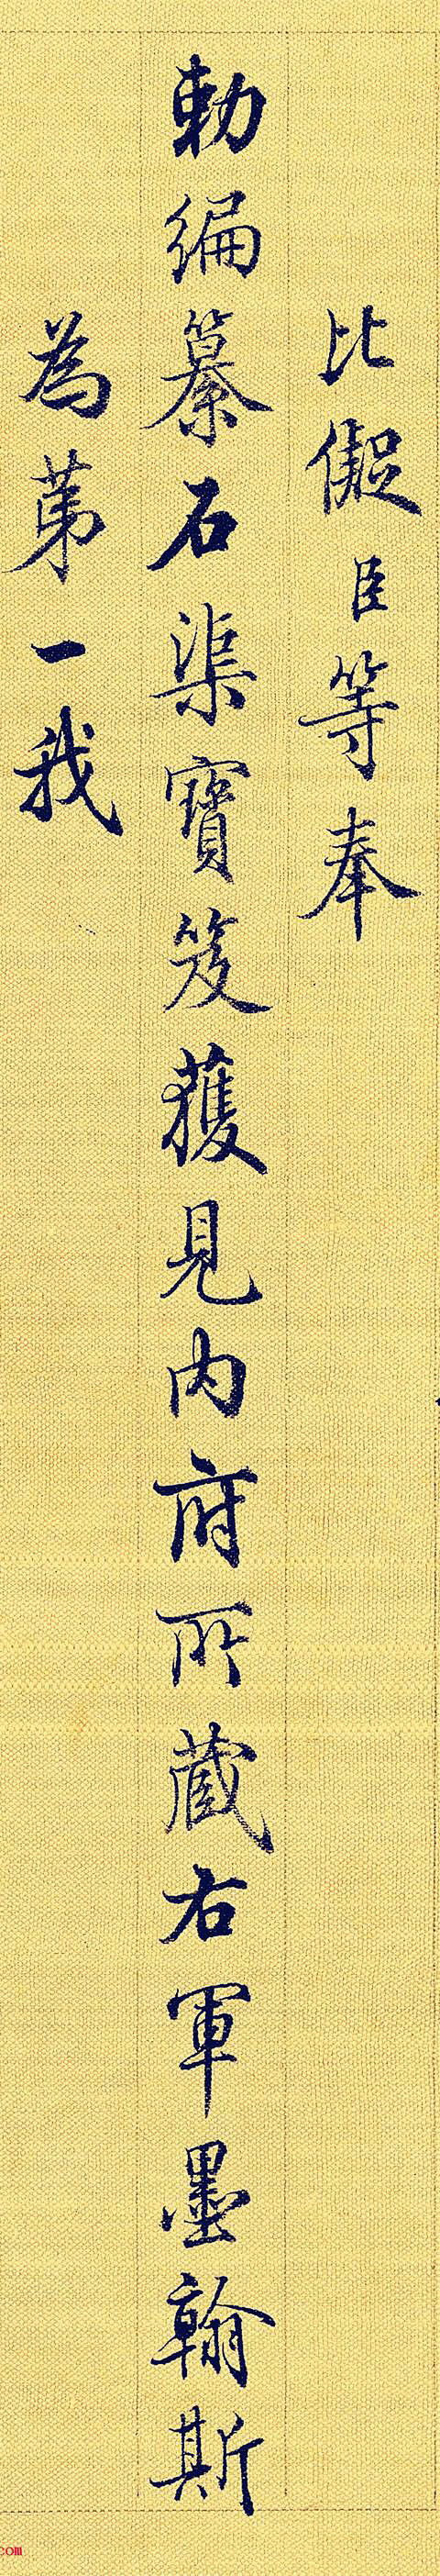 比儗臣等奉
勅編纂石渠寶笈獲見内府所蔵右軍墨翰斯
為苐一我
com